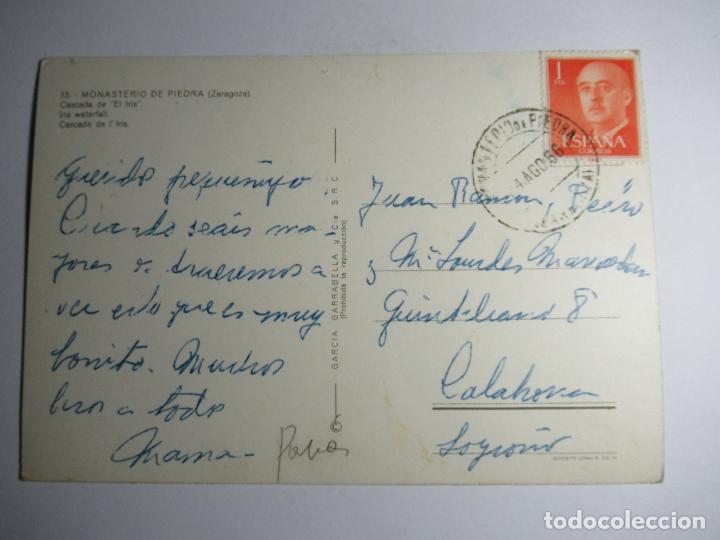 13. - MONASTERIO DE PIEDRA (Zaragoza).
Cascada de "El Iris".
Iris waterfall.
Cascade de l'Iris.
1
PTA
ESPAÑA
CORREOS
PIEDRA
4.AGO.66
Querido
Cuando seais ma-
yores os traeremos a
ver esto que es muy
bonito. Muchos
besos a todos
Mama-
Papa
GARCIA GARRABELLA y Cía. S.R.C
(Prohibida la reproducción)
Juan Ramon,
y Mª Lourdes
Quintiliano 8
Calahorra
Logroño
DEPOSITO LEGAL B.
todocoleccion